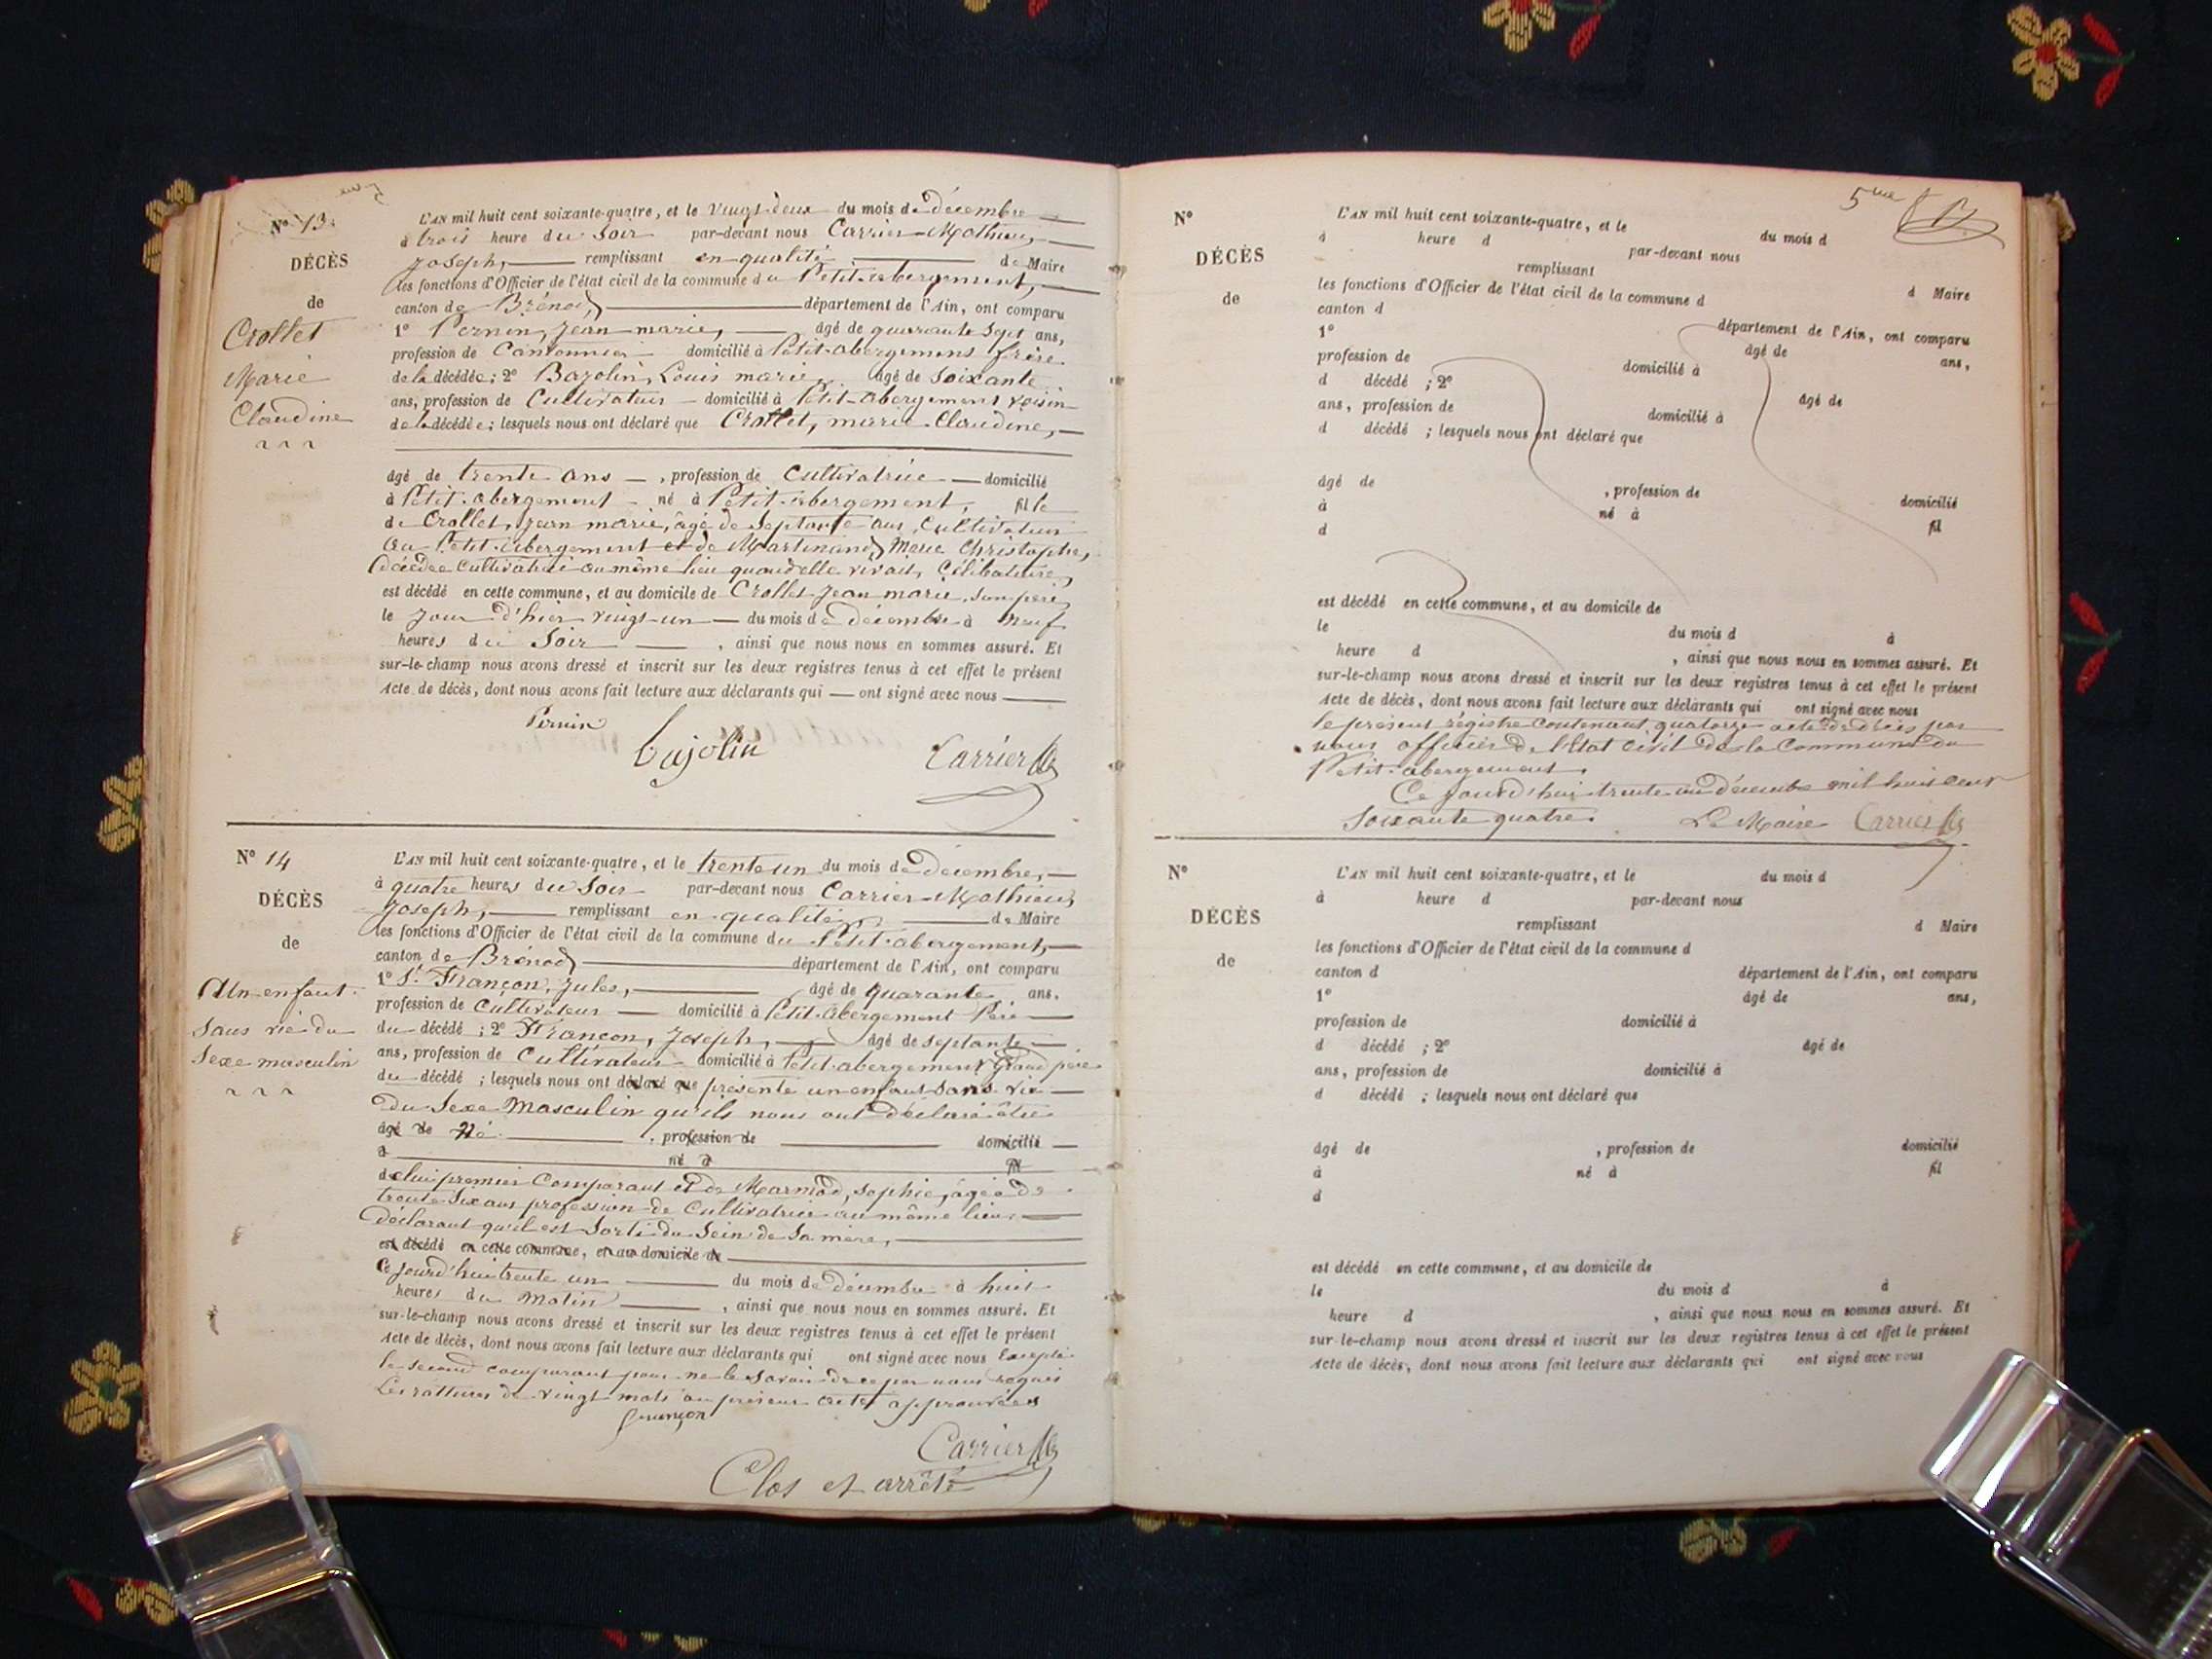 N° 13.
DÉCÈS
de
Crollet
Marie
Claudine
L'AN mil huit cent soixante-quatre, et le vingt-deux du mois de décembre
à trois heure du soir par-devant nous Carrier Mathieu,
Joseph, remplissant en qualité de Maire
les fonctions d'Officier de l'état civil de la commune du Petit-abergement,
canton de Brénod, département de l'Ain, ont comparu
1° Pernin, Jean marie, âgé de quarante sept ans,
profession de Cantonnier domicilié à Petit-abergement frère
de la décédée; 2° Bajolin, Louis marie, âgé de soixante
ans, profession de Cultivateur domicilié à Petit-abergement voisin
de la décédée; lesquels nous ont déclaré que Crollet, marie Claudine,
âgé de trente ans, profession de Cultivatrice domicilié
à Petit-abergement né à Petit-abergement, fille
de Crollet, Jean marie, âgé de septante ans, Cultivateur
au Petit-abergement et de Martinand, Marie Christophe,
décédée Cultivatrice au même lieu quand elle vivait, Célibataire,
est décédé en cette commune, et au domicile de Crollet Jean marie, son père,
le jour d'hier vingt-un du mois de décembre à neuf
heures du soir, ainsi que nous nous en sommes assuré. Et
sur-le-champ nous avons dressé et inscrit sur les deux registres tenus à cet effet le présent
Acte de décès, dont nous avons fait lecture aux déclarants qui ont signé avec nous
Pernin
bajolin
Carrier
N° 14
DÉCÈS
de
Un enfant
sans vie du
sexe masculin
L'AN mil huit cent soixante-quatre, et le trente un du mois de décembre,
à quatre heures du soir par-devant nous Carrier Mathieu,
Joseph, remplissant en qualité, de Maire
les fonctions d'Officier de l'état civil de la commune du Petit-abergement,
canton de Brénod, département de l'Ain, ont comparu
1° Françon, Jules, âgé de quarante ans,
profession de Cultivateur domicilié à Petit-abergement Père
du décédé; 2° Françon, Joseph, âgé de septante
ans, profession de Cultivateur domicilié à Petit-abergement Grand père
du décédé; lesquels nous ont déclaré que présenté un enfant sans vie
du sexe Masculin qu'ils nous ont déclaré être
âgé de Né, profession de domicilié
à né à fil
de lui premier Comparant et de Marmod, Sophie, âgée de
trente six ans profession de Cultivatrice au même lieu,
déclarant qu'il est sorti du sein de sa mère,
est décédé en cette commune, et au domicile de
Ce jourd'hui trente un du mois de décembre à huit
heures du Matin, ainsi que nous nous en sommes assuré. Et
sur-le-champ nous avons dressé et inscrit sur les deux registres tenus à cet effet le présent
Acte de décès, dont nous avons fait lecture aux déclarants qui ont signé avec nous Excepté
le second comparant pour ne le savoir de ce par nous requis
Les rattures de vingt mots au présent acte approuvées
françon
Carrier
Clos et arrêté
5me
N°
DÉCÈS
de
L'AN mil huit cent soixante-quatre, et le du mois d
à heure d par-devant nous
remplissant d Maire
les fonctions d'Officier de l'état civil de la commune d
canton d département de l'Ain, ont comparu
1° âgé de ans,
profession de domicilié à
d décédé ; 2° âgé de
ans, profession de domicilié à
d décédé ; lesquels nous ont déclaré que
âgé de , profession de domicilié
à né à fil
d
est décédé en cette commune, et au domicile de
le du mois d à
heure d , ainsi que nous nous en sommes assuré. Et
sur-le-champ nous avons dressé et inscrit sur les deux registres tenus à cet effet le présent
Acte de décès, dont nous avons fait lecture aux déclarants qui ont signé avec nous
le présent régistre contenant quatorze acte de décès par
nous officier de l'état civil de la Commune du
Petit-abergement.
Ce jourd'hui trente un décembre mil huit cent
soixante quatre. Le Maire Carrier
N°
DÉCÈS
de
L'AN mil huit cent soixante-quatre, et le du mois d
à heure d par-devant nous
remplissant d Maire
les fonctions d'Officier de l'état civil de la commune d
canton d département de l'Ain, ont comparu
1° âgé de ans,
profession de domicilié à
d décédé ; 2° âgé de
ans, profession de domicilié à
d décédé ; lesquels nous ont déclaré que
âgé de , profession de domicilié
à né à fil
d
est décédé en cette commune, et au domicile de
le du mois d à
heure d , ainsi que nous nous en sommes assuré. Et
sur-le-champ nous avons dressé et inscrit sur les deux registres tenus à cet effet le présent
Acte de décès, dont nous avons fait lecture aux déclarants qui ont signé avec nous